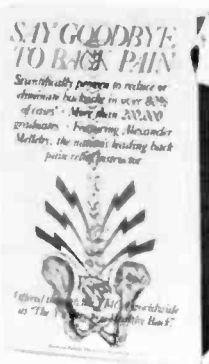 SAY GOODBYE
TO BACK PAIN
Scientifically proven to reduce or
eliminate backache in over 80%
of cases · More than 200,000
graduates · Featuring Alexander
Melleby, the nation's leading back
pain relief instructor
Offered through YMCA's worldwide
as "The Y's Way to a Healthy Back"